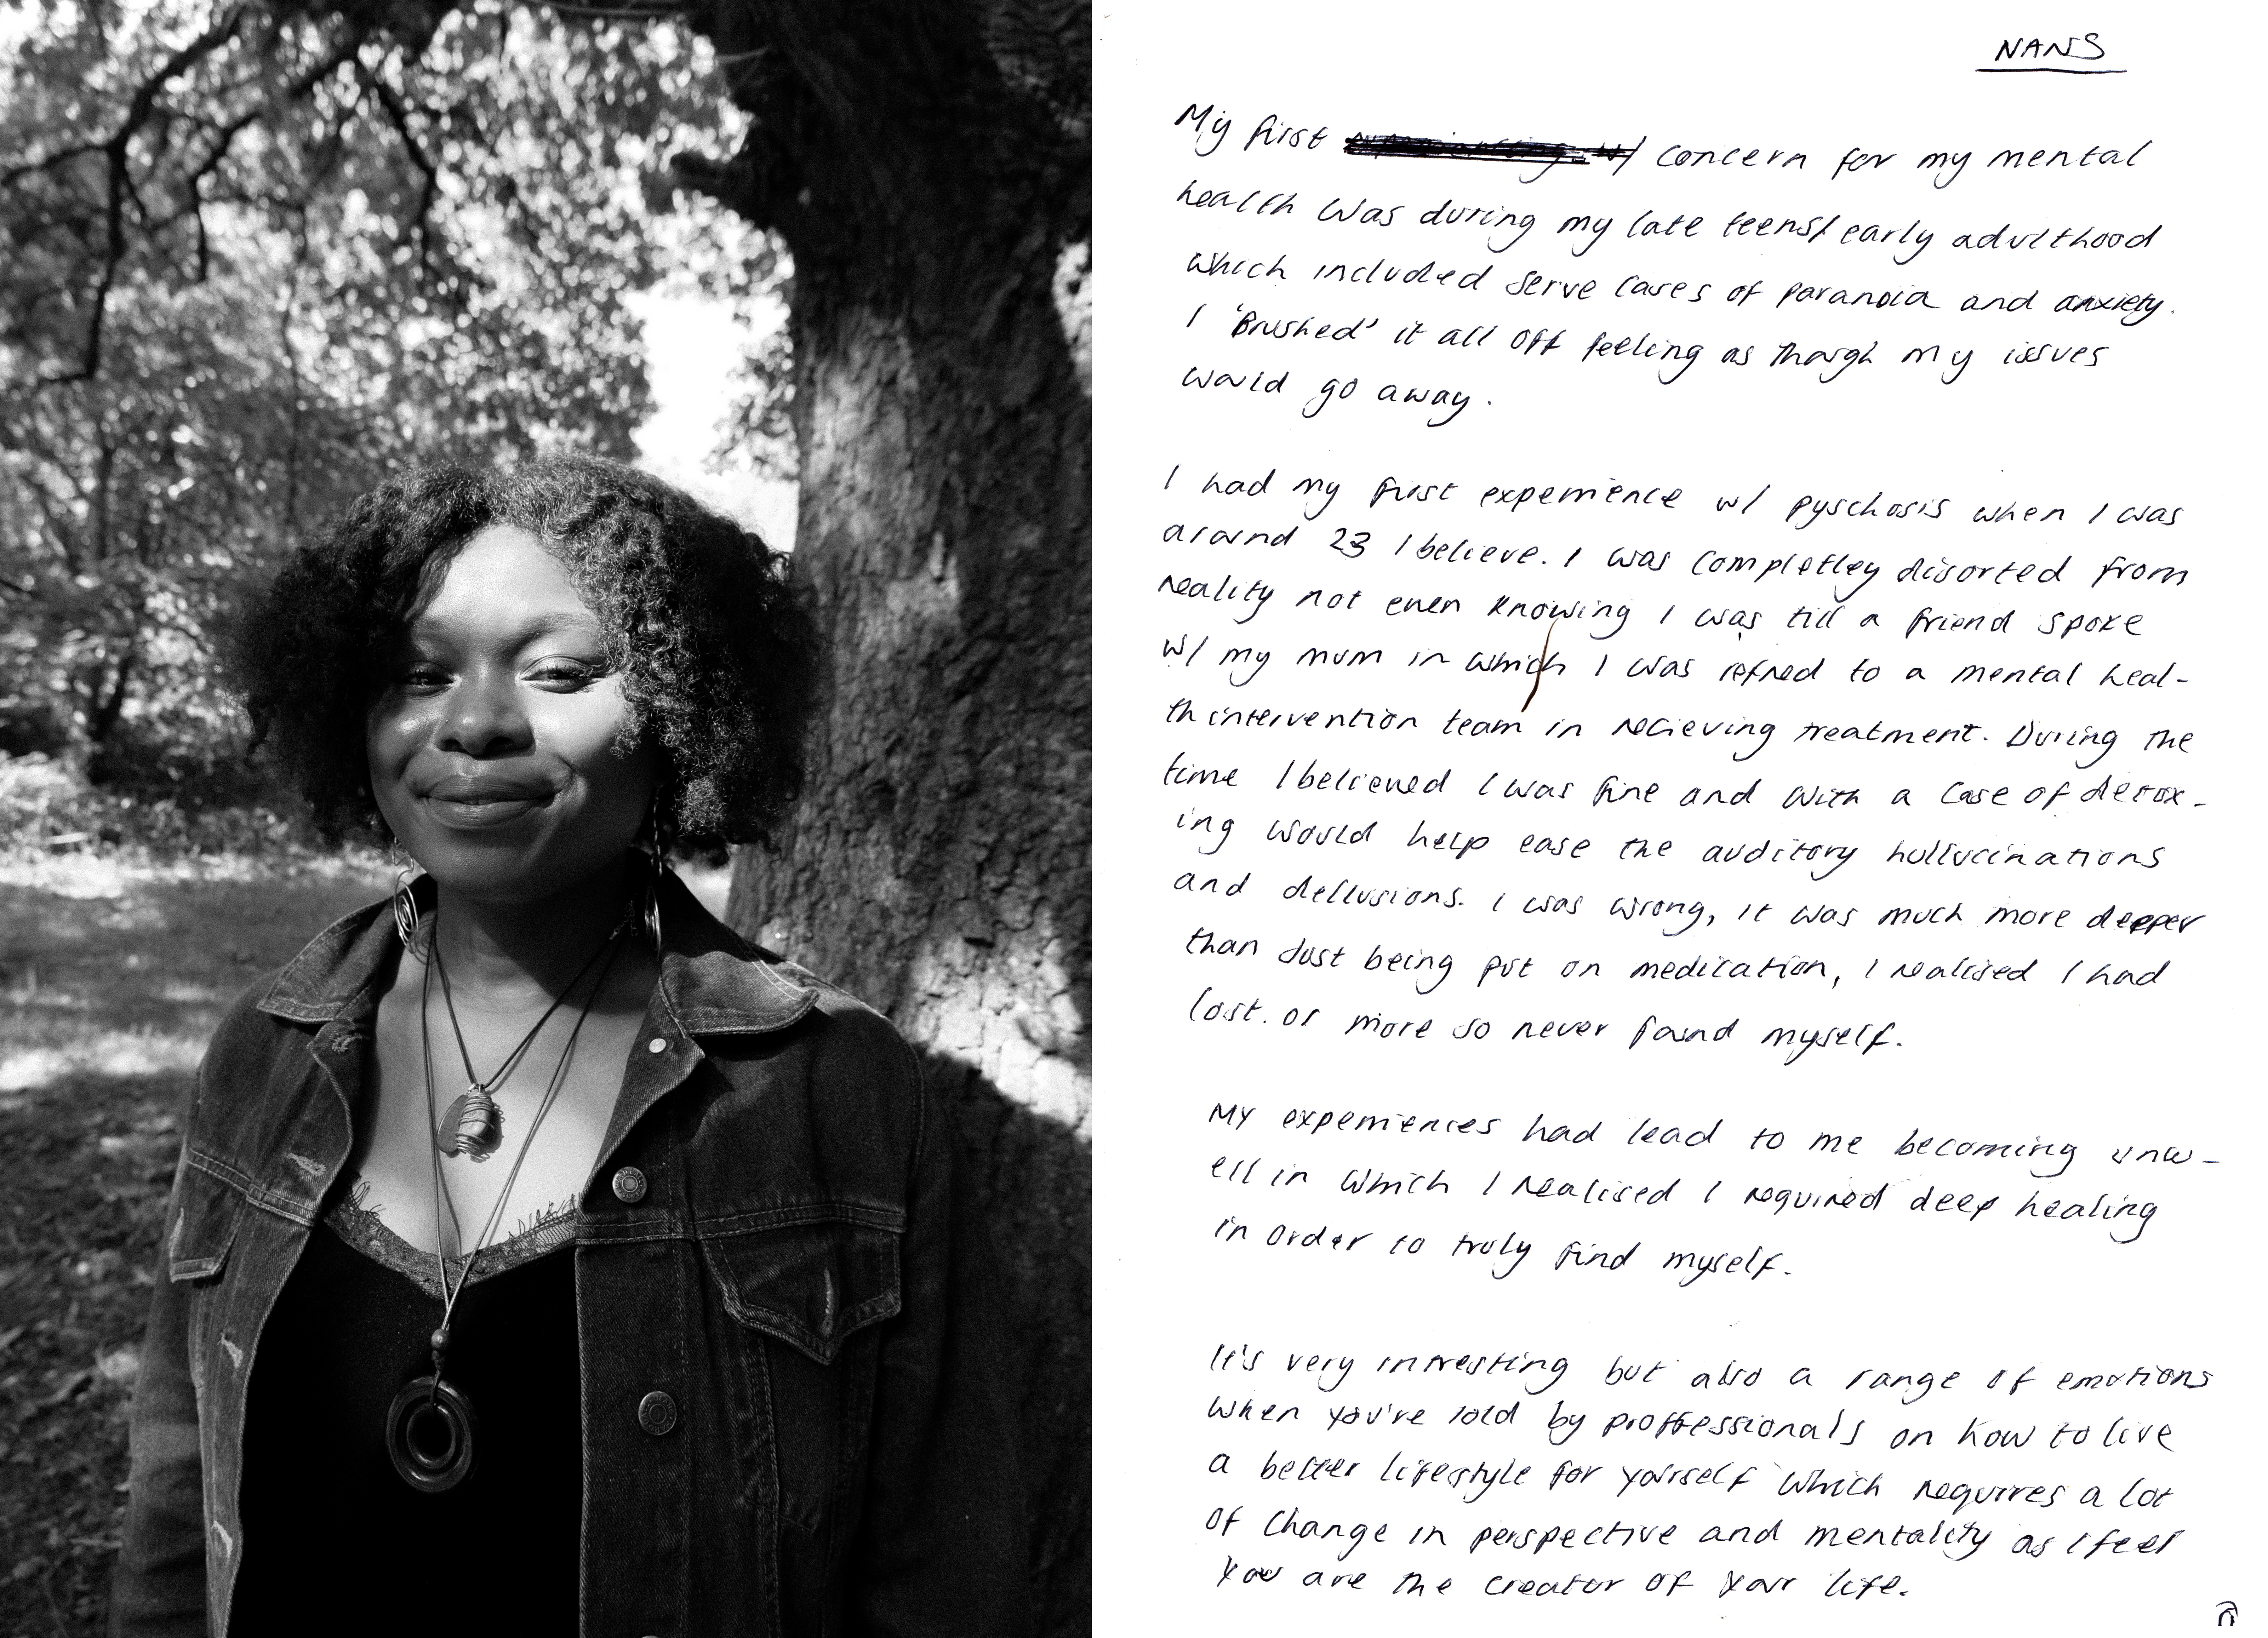 NANS
My first concern for my mental
health was during my late teens/early adulthood
which included serve cases of paranoia and anxiety.
I 'Brushed' it all off feeling as though my issues
would go away.
I had my first experience w/ pyschosis when I was
around 23 I believe. I was completley disorted from
reality not even knowing I was till a friend spoke
w/ my mum in which I was refned to a mental heal-
th intervention team in recieving treatment. During the
time I believed I was fine and with a case of detox-
ing would help ease the auditory hullucinations
and dellusions. I was wrong, it was much more deeper
than Just being put on medication, I realised I had
lost. or more so never found myself.
My experiences had lead to me becoming unw-
ell in which I realised I required deep healing
in order to truly find myself.
It's very intresting but also a range of emotions
when you're told by proffessionals on how to live
a better lifestyle for yourself which requires a lot
of change in perspective and mentality as I feel
You are the creator of your life.